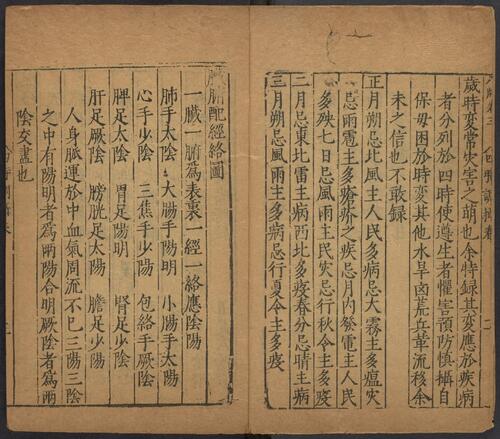 歲時變常災害之萌也余特録其變應於疾病
者分列於四時使遵生者懼害預防慎攝自
保毋困於時變其他水旱凶荒兵革流移余
未之信也不敢録
正月朔忌北風主人民多病忌大霧主多瘟灾
忌雨雹主多瘡疥之疾忌月內發電主人民
多殃七日忌風雨主民灾忌行秋令主多疫
二月忌東北雷主病西北多疫春分忌晴主病
三月朔忌風雨主多病忌行夏令主多疫
腑配經絡圖
一臟一腑爲表裏一經一絡應陰陽
肺手太陰 大腸手陽明 小腸手太陽
心手少陰 三焦手少陽 包絡手厥陰
脾足太陰 胃足陽明 腎足少陰
肝足厥陰 膀胱足太陽 膽足少陽
人身脈運於中血氣周流不已三陽三陰
之中有陽明者爲兩陽合明厥陰者爲兩
陰交盡也